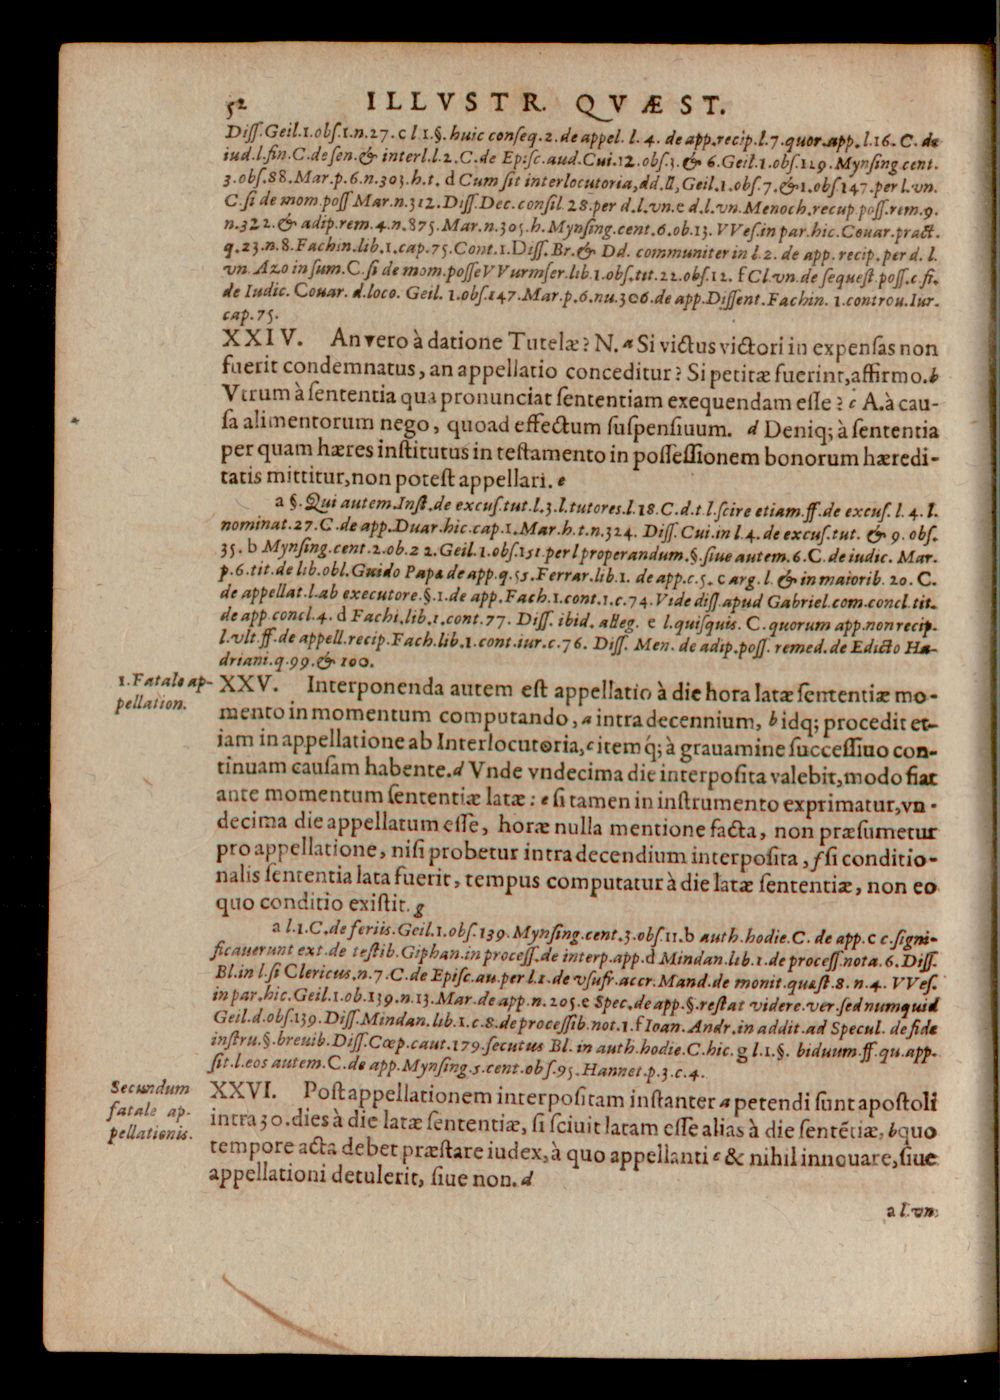 52 ILLVSTR. QVÆST.
Diſſ. Geil. 1. obſ. 1. n. 27. c l 1. §. huic conſeq. 2. de appel. l. 4. de app. recip. l. 7. quor. app. l. 16. C. de
iud. l. fin. C. de ſen. & interl. l. 2. C. de Epiſc. aud. Cui. 12. obſ. 3. & 6. Geil. 1. obſ. 129. Mynſing. cent.
3. obſ. 88. Mar. p. 6. n. 303. h. t. d Cum ſit interlocutoria, dd. ll, Geil. 1. obſ. 7. & 1. obſ 147. per l. vn.
C. ſi de mom. poſſ Mar. n. 312. Diſſ. Dec. conſil. 28. per d. l. vn. e d. l. vn. Menoch. recup. poſſ. rem. 9.
n. 322. & adip. rem. 4. n. 875. Mar. n. 305. h. Mynſing. cent. 6. ob. 13. VVeſ. in par. hic. Couar. pract.
q. 23. n. 8. Fachin. lib. 1. cap. 75. Cont. 1. Diſſ. Br. & Dd. communiter in l. 2. de app. recip. per d. l.
vn. Azo in ſum. C. ſi de mom. poſſe VVurmſer. lib. 1. obſ. tit. 22. obſ. 12. f Cl vn. de ſequeſt. poſſ. c. fi.
de Iudic. Couar. d. loco. Geil. 1. obſ. 147. Mar. p. 6. nu. 306. de app. Diſſent. Fachin. 1. controu. Iur.
cap. 75.
XXIV. An vero à datione Tutelæ? N. a Si victus victori in expenſas non
fuerit condemnatus, an appellatio conceditur? Si petitæ fuerint, affirmo. b
Vtrum à ſententia qua pronunciat ſententiam exequendam eſſe? c A. à cau-
ſa alimentorum nego, quoad effectum ſuſpenſiuum. d Deniq; à ſententia
per quam hæres inſtitutus in teſtamento in poſſeſſionem bonorum hæredi-
tatis mittitur, non poteſt appellari. e
a §. Qui autem. Inſt. de excuſ. tut. l. 3. l. tutores. l. 18. C. d. t l. ſcire etiam. ff. de excuſ. l. 4. l.
nominat. 27. C. de app. Duar. hic. cap. 1. Mar. h. t. n. 324. Diſſ. Cui. in l 4. de excuſ. tut. & 9. obſ.
35. b Mynſing. cent. 2. ob. 22. Geil. 1. obſ. 151. per l properandum. §. ſiue autem. 6. C. de iudic. Mar.
p. 6. tit. de lib. obl. Guido Papa de app. q. 55. Ferrar. lib. 1. de app. c. 5. c arg. l. & in maiorib. 20. C.
de appellat. l. ab executore. §. 1. de app. Fach. 1. cont. 1. c. 74. Vide diſſ. apud Gabriel. com. concl. tit.
de app. concl. 4. d Fachi. lib. 1. cont. 77. Diſſ. ibid. alleg. e l. quiſquis. C. quorum app. non recip.
l. vlt. ff. de appell. recip. Fach. lib. 1. cont. iur. c. 76. Diſſ. Men. de adip. poſſ. remed. de Edicto Ha-
driani. q. 99. & 100.
1. Fatale ap-
pellation.
XXV. Interponenda autem eſt appellatio à die hora latæ ſententiæ mo-
mento in momentum computando, a intra decennium, b idq; procedit et-
iam in appellatione ab Interlocutoria, c item q́; à grauamine ſucceſſiuo con-
tinuam cauſam habente. d Vnde vndecima die interpoſita valebit, modo fiat
ante momentum ſententiæ latæ: e ſi tamen in inſtrumento exprimatur, vn-
decima die appellatum eſſe, horæ nulla mentione facta, non præſumetur
pro appellatione, niſi probetur intra decendium interpoſita, f ſi conditio-
nalis ſententia lata fuerit, tempus computatur à die latæ ſententiæ, non eo
quo conditio exiſtit. g
a l. 1. C. de feriis. Geil. 1. obſ. 139. Mynſing. cent. 3. obſ. 11. b auth. hodie. C. de app. c c. ſigni-
ficauerunt ext. de teſtib. Giphan. in proceſſ. de interp. app. d Mindan. lib. 1. de proceſſ. nota. 6. Diſſ.
Bl. in l. ſi Clericus. n. 7. C. de Epiſc. au. per l. 1. de vſufr. accr. Mand. de monit. quæſt. 8. n. 4. VVeſ.
in par. hic. Geil. 1. ob. 139. n. 13. Mar. de app. n. 205. e Spec. de app. §. reſtat videre. ver. ſed numquid
Geil. d. obſ. 139. Diſſ. Mindan. lib. 1. c. 8. de proceſſib. not. 1. f Ioan. Andr. in addit. ad Specul. de fide
inſtru. §. breuib. Diſſ. Cœp. caut. 179. ſecutus Bl. in auth. hodie. C. hic. g l. 1. §. biduum. ff. qu. app.
ſit. l. eos autem. C. de app. Mynſing. 5. cent. obſ. 95. Hannet. p. 3. c. 4.
Secundum
fatale ap-
pellationis.
XXVI. Poſt appellationem interpoſitam inſtanter a petendi ſunt apoſtoli
intra 30. dies à die latæ ſententiæ, ſi ſciuit latam eſſe alias à die ſentẽtiæ, b quo
tempore acta debet præſtare iudex, à quo appellanti c & nihil innouare, ſiue
appellationi detulerit, ſiue non. d
a l. vn.